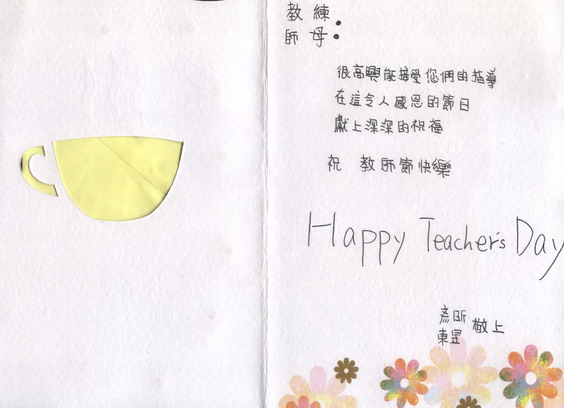 教練:
師母:
很高興能接受您們的指導
在這令人感恩的節日
獻上深深的祝福
祝 教師節快樂
Happy Teacher's Day
彥昕
東昱 敬上